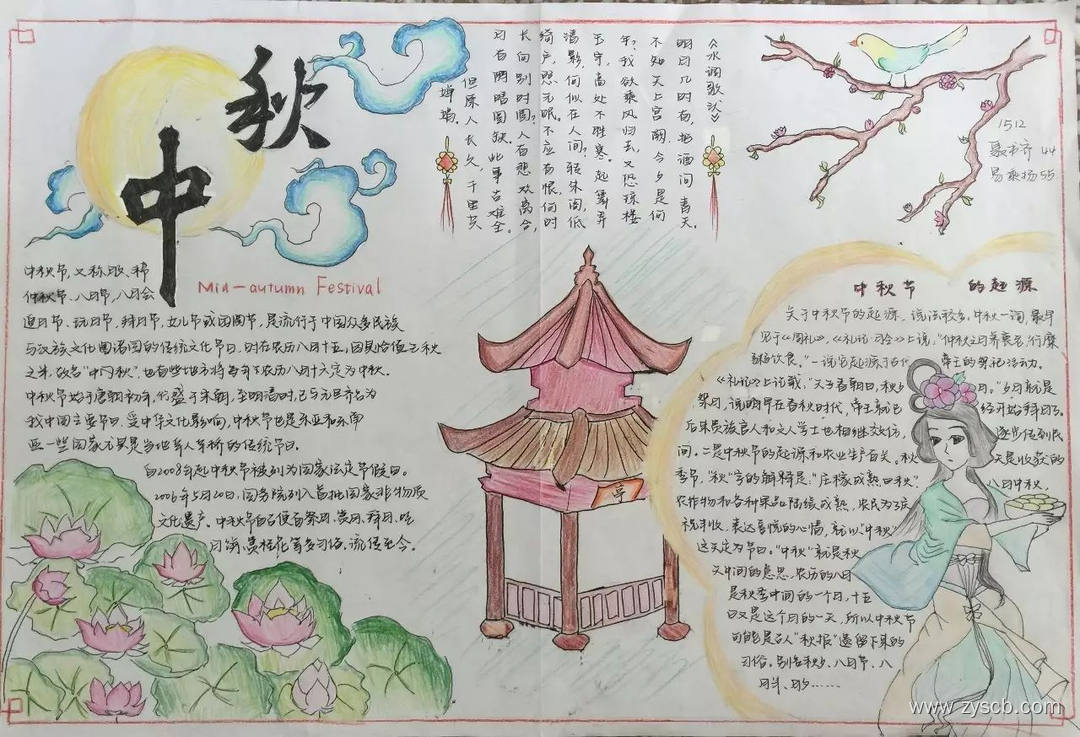 中秋
Mid-autumn Festival
中秋节,又称月夕、
仲秋节、八月节、八月会
追月节、玩月节、拜月节、女儿节或团圆节,是流行于中国众多民族
与汉族文化圈诸国的传统文化节日,时在农历八月十五;因其恰值三秋
之半,故名“中秋”,也有些地方将中秋节定在八月十六。
中秋节始于唐朝初年,盛于宋朝,至明清时,已与元旦齐名为
我中国主要节日。受中华文化影响,中秋节也是东亚和东南
亚一些国家尤其是当地华人华侨的传统节日。
自2008年起中秋节被列为国家法定节假日。
2006年5月20日,国务院列入首批国家非物质
文化遗产。中秋节自古便有祭月、赏月、拜月、吃
月饼、赏桂花等多习俗,流传至今。
《水调歌头》
明月几时有,把酒问青天。
不知天上宫阙,今夕是何
年?我欲乘风归去,又恐琼楼
玉宇,高处不胜寒。起舞弄
清影,何似在人间?转朱阁,低
绮户,照无眠。不应有恨,何时
长向别时圆?人有悲欢离合,
月有阴晴圆缺。此事古难全。
但原人长久,千里共
婵娟。
1512
44
55
亭
中秋节的起源
关于中秋节的起源,说法较多,中秋一词,最早
见于《周礼》,《礼记·月令》上说:“仲秋之月养衰老,行糜
粥饮食。”一说它起源于古代帝王的祭祀活动。
《礼记》上记载:“天子春朝日,秋夕月。”夕月就是
祭月,说明早在春秋时代,帝王就已经开始拜月了。
后来贵族官人和文人学士也相继效仿,逐步传到民
间。二是中秋节的起源和农业生产有关。秋天是收获的
季节,“秋”字的解释是:“庄稼成熟曰秋”。八月中秋,
农作物和各种果品陆续成熟,农民为了庆
祝丰收,表达喜悦的心情,就以“中秋”
这天定为节日。“中秋”就是秋
天中间的意思,农历的八月
是秋季中间的一个月,十五
日又是这个月的一天,所以中秋节
可能是古人“秋报”遗留下来的
习俗。别名秋夕、八月节、八
月半、月夕……
www.zyscb.com